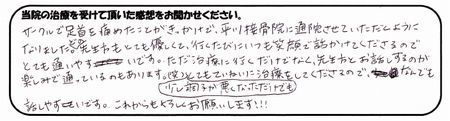 当院の治療を受けて頂いた感想をお聞かせください。
サークルで足首を痛めたことがきっかけで、平川接骨院に通院させていただくように
なりました。院長先生方もとても優しくて、行くたびにいつも笑顔で話かけてくださるので
とても通いやすいです。ただ治療に行くだけでなく、先生方とお話しするのが
楽しみで通っているのもあります。(笑)とてもていねいに治療をしてくださるので、なんでも
少し調子が悪くなっただけでも
話しやすいです。これからもよろしくお願いします!!!